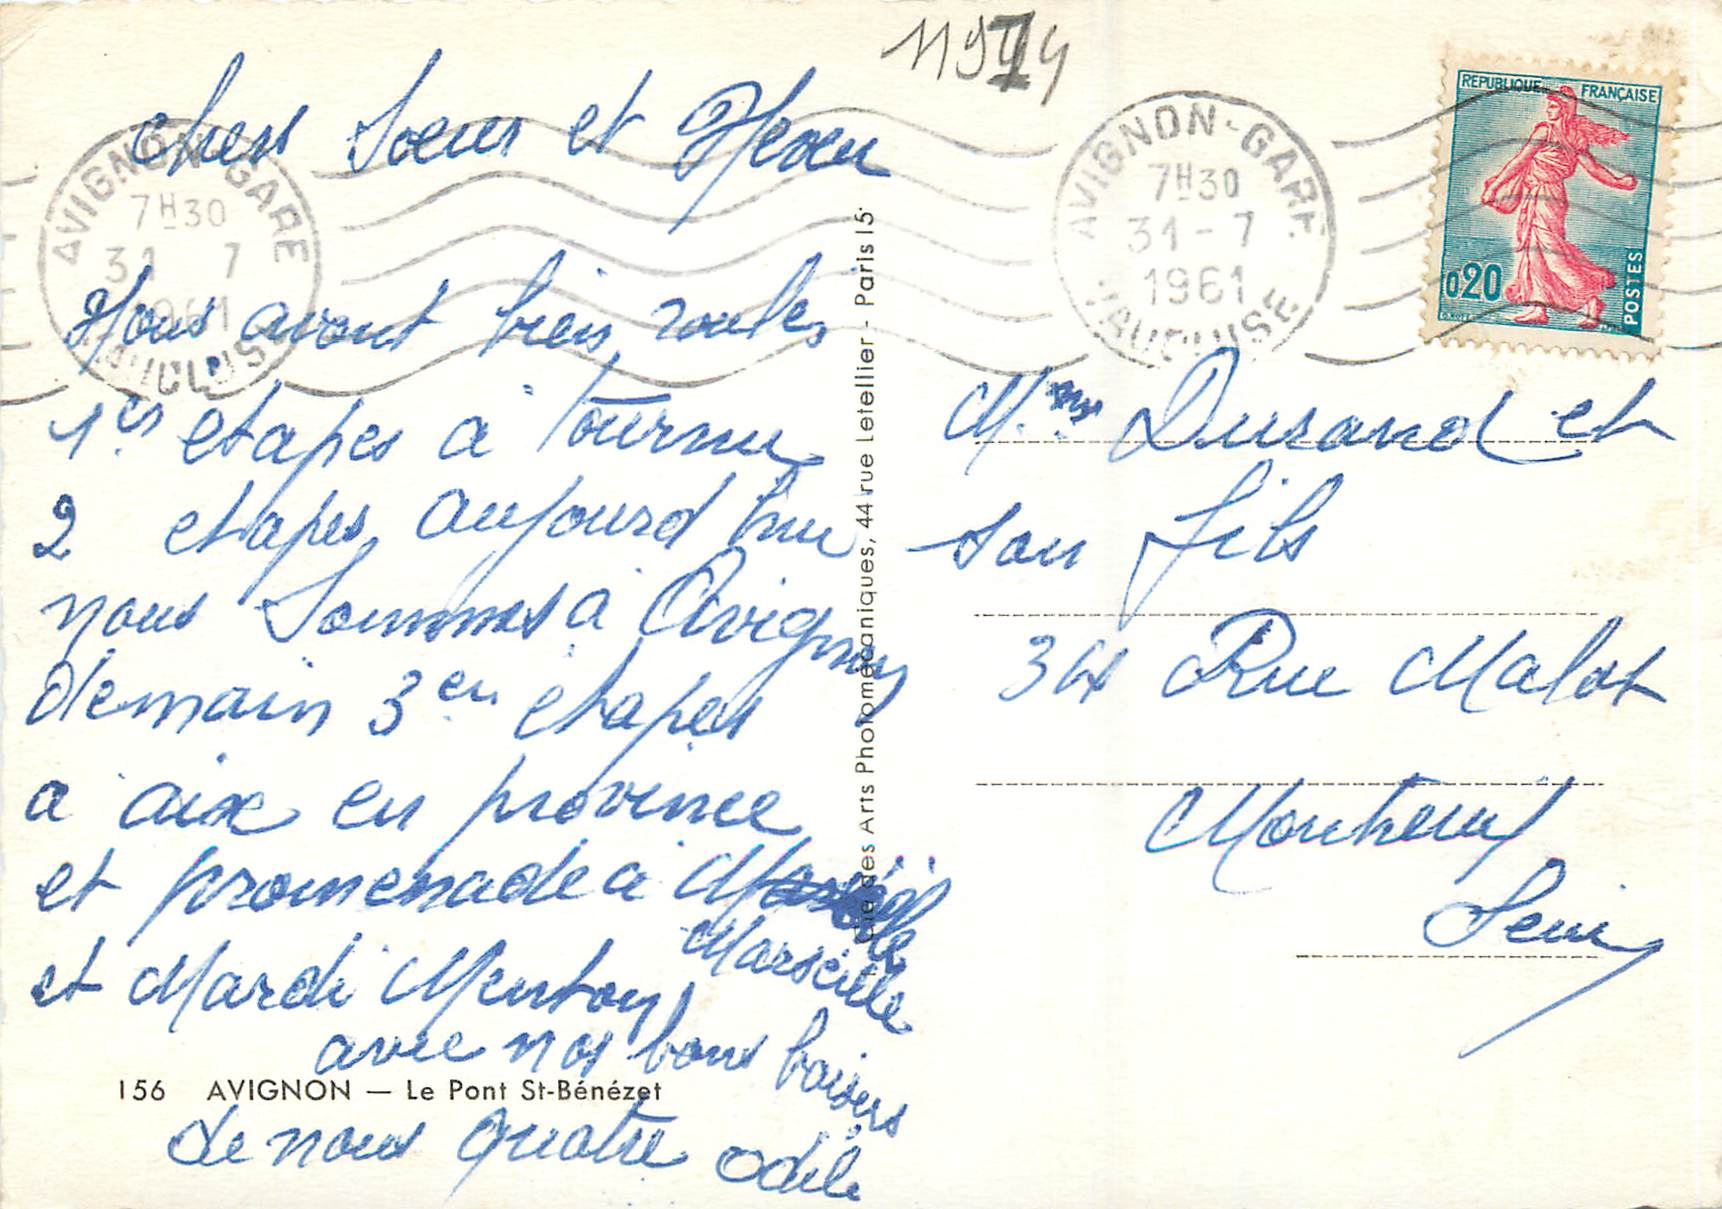 11974
chers Soeur et Neveu
Nous avont bien roulés
1er etapes a Tournu
2 etapes aujourd hui
nous Sommes a Avignon
demain 3en etapes
a aix en provence
et promenade a
Marseille
et Mardi Menton
avec nos bons baisers
de nous quatre Odile
156 AVIGNON — Le Pont St-Bénézet
des Arts Photomécaniques, 44 rue Letellier - Paris 15
AVIGNON GARE
7H30
31 7
1961
VAUCLUSE
AVIGNON-GARE
7H30
31-7
1961
VAUCLUSE
REPUBLIQUE FRANÇAISE
0,20
POSTES
Mme Durand et
son fils
34 Rue Malot
Montreuil
Seine